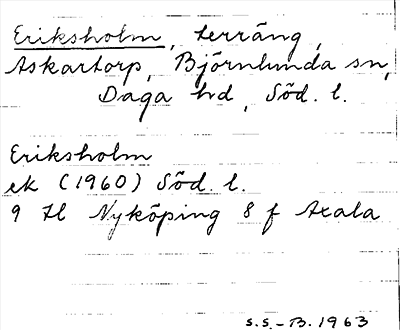 Eriksholm, terräng,
Askartorp, Björnlunda sn,
Daga hd, Söd. l.
Eriksholm
ek (1960) Söd. l.
9 H Nyköping 8 f Axala
S.S.-B. 1963